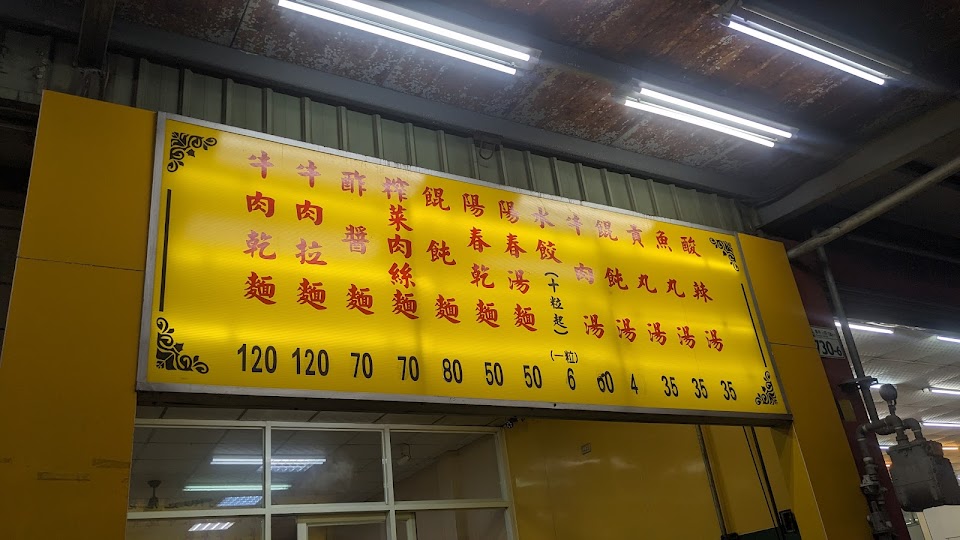 牛肉乾麵 120
牛肉拉麵 120
酢醬麵 70
榨菜肉絲麵 70
餛飩麵 80
陽春乾麵 50
陽春湯麵 50
水餃(十粒起) (一粒) 6
牛肉湯
餛飩湯 4
貢丸湯 35
魚丸湯 35
酸辣湯 35
730-6